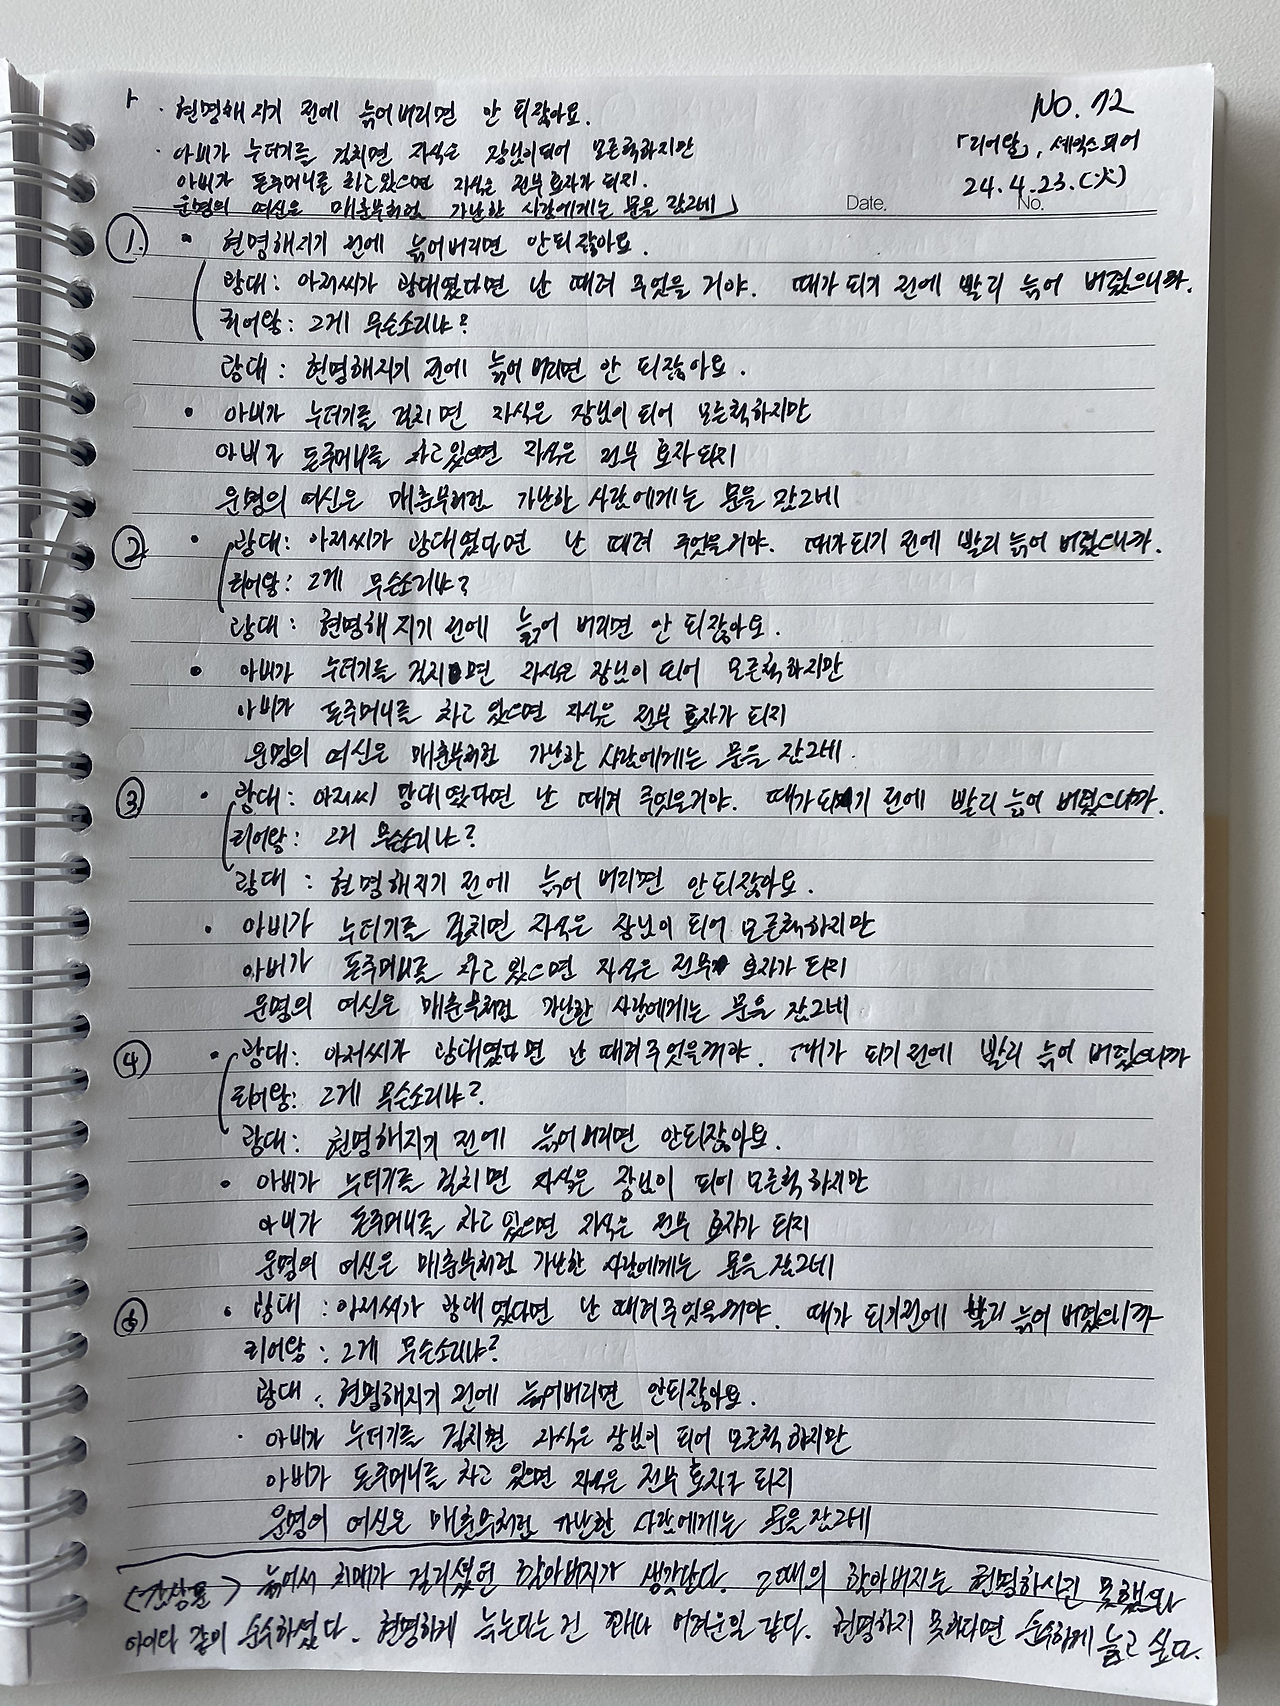 · 현명해 지기 전에 늙어버리면 안 되잖아요.
NO. 72
· 아비가 누더기를 걸치면 자식은 장님이되어 모른척하지만
「리어왕」, 셰익스피어
아비가 돈주머니를 차고 있으면 자식은 전부 효자가 되지.
24.4.23.(火)
운명의 여신은 매춘부처럼 가난한 사람에게는 문을 잠그네」
Date. No.
① • 현명해지기 전에 늙어버리면 안되잖아요.
광대: 아저씨가 광대였다면 난 때려 주었을 거야. 때가 되기 전에 빨리 늙어 버렸으니까.
리어왕: 그게 무슨소리냐?
광대: 현명해지기 전에 늙어 버리면 안 되잖아요.
• 아비가 누더기를 걸치면 자식은 장님이 되어 모른척하지만
아비가 돈주머니를 차고있으면 자식은 전부 효자되지
운명의 여신은 매춘부처럼 가난한 사람에게는 문을 잠그네
② • 광대: 아저씨가 광대였다면 난 때려 주었을거야. 때가되기 전에 빨리 늙어 버렸으니까.
리어왕: 그게 무슨소리냐?
광대: 현명해 지기 전에 늙어 버리면 안 되잖아요.
• 아비가 누더기를 걸치면 자식은 장님이 되어 모른척하지만
아비가 돈주머니를 차고 있으면 자식은 전부 효자가 되지
운명의 여신은 매춘부처럼 가난한 사람에게는 문을 잠그네.
③ • 광대: 아저씨 광대였다면 난 때려 주었을거야. 때가되기 전에 빨리 늙어 버렸으니까.
리어왕: 그거 무슨소리냐?
광대: 현명해지기 전에 늙어 버리면 안되잖아요.
• 아비가 누더기를 걸치면 자식은 장님이 되어 모른척하지만
아비가 돈주머니를 차고 있으면 자식은 전부 효자가 되지
운명의 여신은 매춘부처럼 가난한 사람에게는 문을 잠그네
④ • 광대: 아저씨가 광대였다면 난 때려주었을거야. 때가 되기전에 빨리 늙어 버렸으니까
리어왕: 그게 무슨소리냐?
광대: 현명해지기 전에 늙어버리면 안되잖아요.
• 아비가 누더기를 걸치면 자식은 장님이 되어 모른척 하지만
아비가 돈주머니를 차고 있으면 자식은 전부 효자가 되지
운명의 여신은 매춘부처럼 가난한 사람에게는 문을 잠그네
⑤ • 광대: 아저씨가 광대였다면 난 때려주었을거야. 때가 되기전에 빨리 늙어 버렸으니까
리어왕: 그게 무슨소리냐?
광대: 현명해지기 전에 늙어버리면 안되잖아요.
· 아비가 누더기를 걸치면 자식은 장님이 되어 모른척 하지만
아비가 돈주머니를 차고 있으면 자식은 전부 효자가 되지
운명의 여신은 매춘부처럼 가난한 사람에게는 문을 잠그네
(감상문) 늙어서 치매가 걸리셨던 할아버지가 생각난다. 그때의 할아버지는 현명하시진 못했으나
아이와 같이 순수하셨다. 현명하게 늙는다는건 꽤나 어려운일 같다. 현명하지 못하다면 순수하게 늙고 싶다.